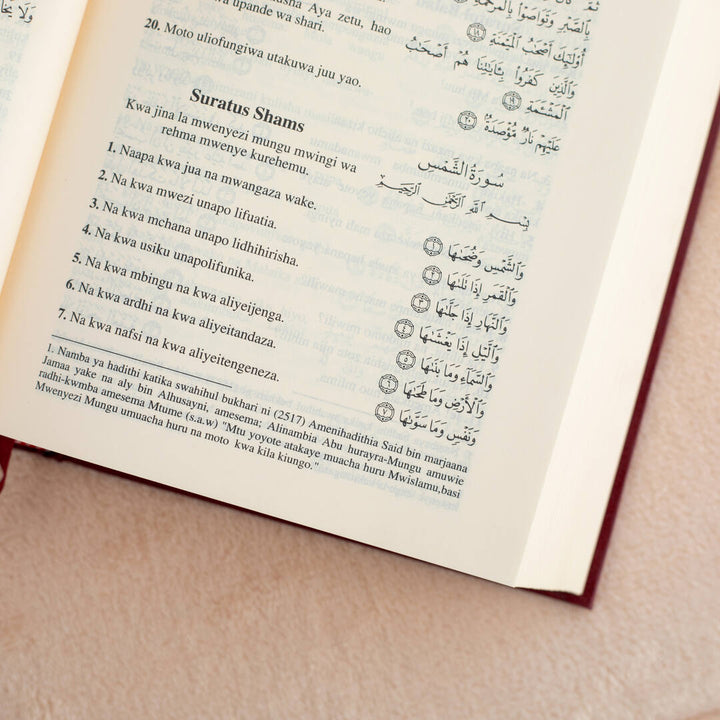 Aya zetu, hao
upande wa shari.
20. Moto uliofungiwa utakuwa juu yao.
Suratus Shams
Kwa jina la mwenyezi mungu mwingi wa
rehma mwenye kurehemu.
1. Naapa kwa jua na mwangaza wake.
2. Na kwa mwezi unapo lifuatia.
3. Na kwa mchana unapo lidhihirisha.
4. Na kwa usiku unapolifunika.
5. Na kwa mbingu na kwa aliyeijenga.
6. Na kwa ardhi na kwa aliyeitandaza.
7. Na kwa nafsi na kwa aliyeitengeneza.
1. Namba ya hadithi katika swahihul bukhari ni (2517) Amenihadithia Said bin marjaana
Jamaa yake na aly bin Alhusayni, amesema; Alinambia Abu hurayra-Mungu amuwie
radhi-kwmba amesema Mtume (s.a.w) "Mtu yoyote atakaye muacha huru Mwislamu,basi
Mwenyezi Mungu umuacha huru na moto kwa kila kiungo."
بِٱلصَّبْرِ وَتَوَاصَوْا۟ بِٱلْمَرْحَمَةِ ١٧
أُو۟لَـٰٓئِكَ أَصْحَـٰبُ ٱلْمَيْمَنَةِ ١٨
وَٱلَّذِينَ كَفَرُوا۟ بِـَٔايَـٰتِنَا هُمْ أَصْحَـٰبُ
ٱلْمَشْـَٔمَةِ ١٩
عَلَيْهِمْ نَارٌ مُّؤْصَدَةٌۢ ٢٠
سُورَةُ الشَّمْسِ
بِسْمِ ٱللَّهِ ٱلرَّحْمَـٰنِ ٱلرَّحِيمِ
وَٱلشَّمْسِ وَضُحَىٰهَا ١
وَٱلْقَمَرِ إِذَا تَلَىٰهَا ٢
وَٱلنَّهَارِ إِذَا جَلَّىٰهَا ٣
وَٱلَّيْلِ إِذَا يَغْشَىٰهَا ٤
وَٱلسَّمَآءِ وَمَا بَنَىٰهَا ٥
وَٱلْأَرْضِ وَمَا طَحَىٰهَا ٦
وَنَفْسٍ وَمَا سَوَّىٰهَا ٧